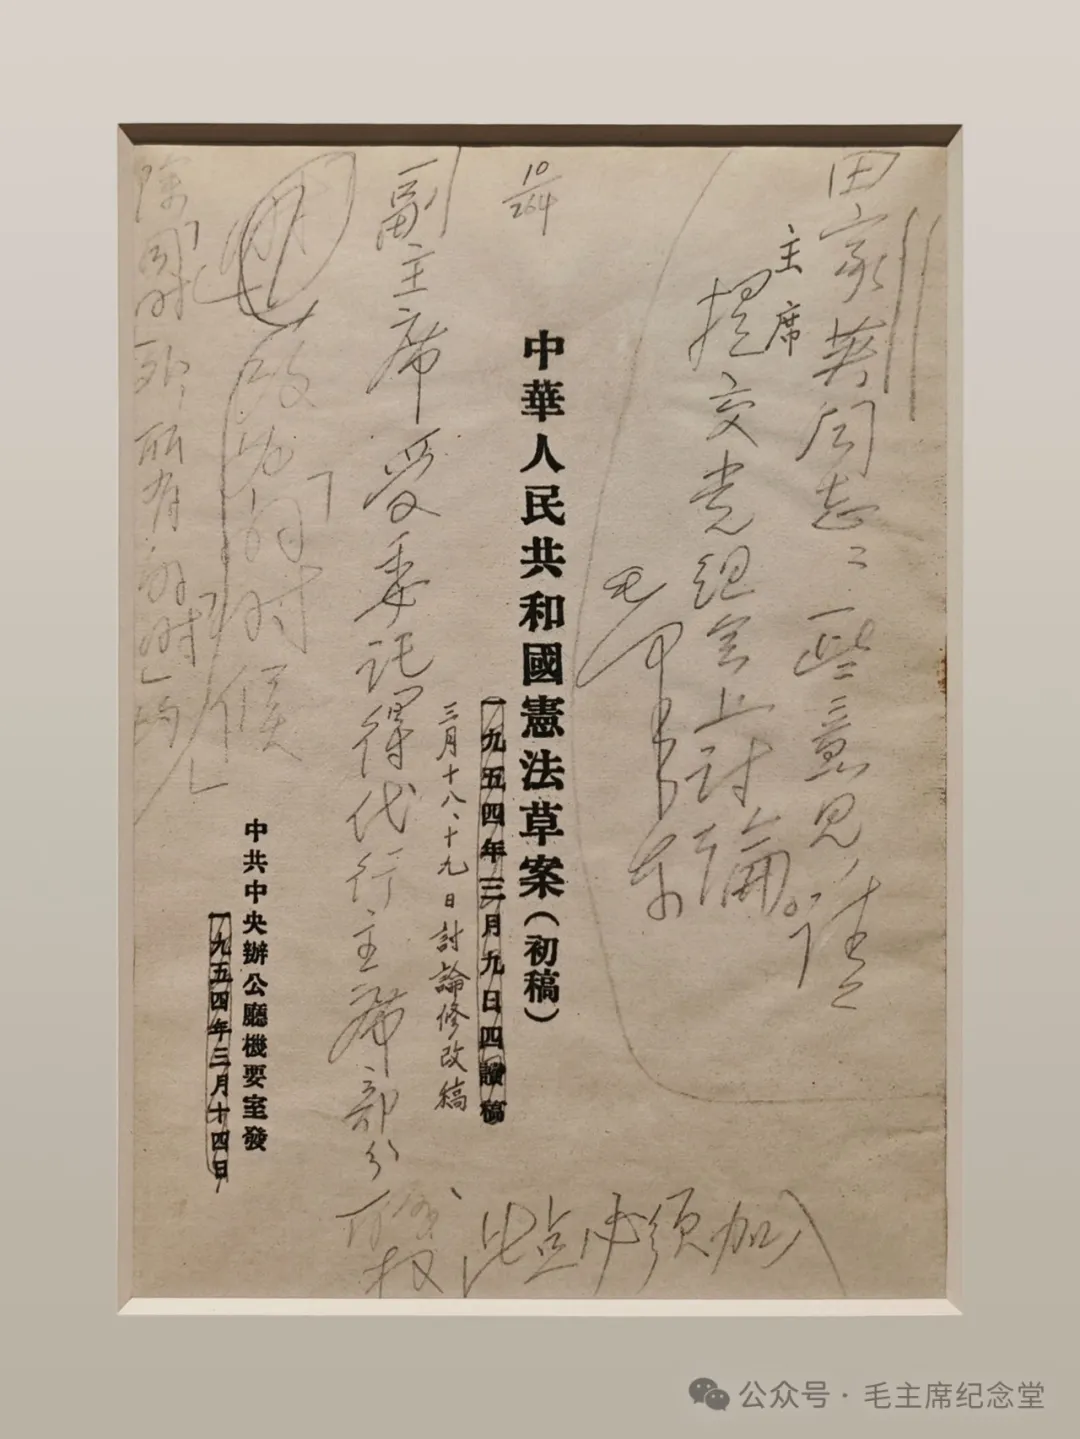 田家英同志：一些意见，请
主席
提交党组会上讨论。
毛泽东
10/264
中華人民共和國憲法草案（初稿）
一九五四年三月九日四讀稿
三月十八、十九日討論修改稿
副主席受委託得代行主席部分
职权
此点必须加入
改为
的时候
除 所有
中共中央辦公廳機要室發
一九五四年三月十四日
公众号·毛主席纪念堂